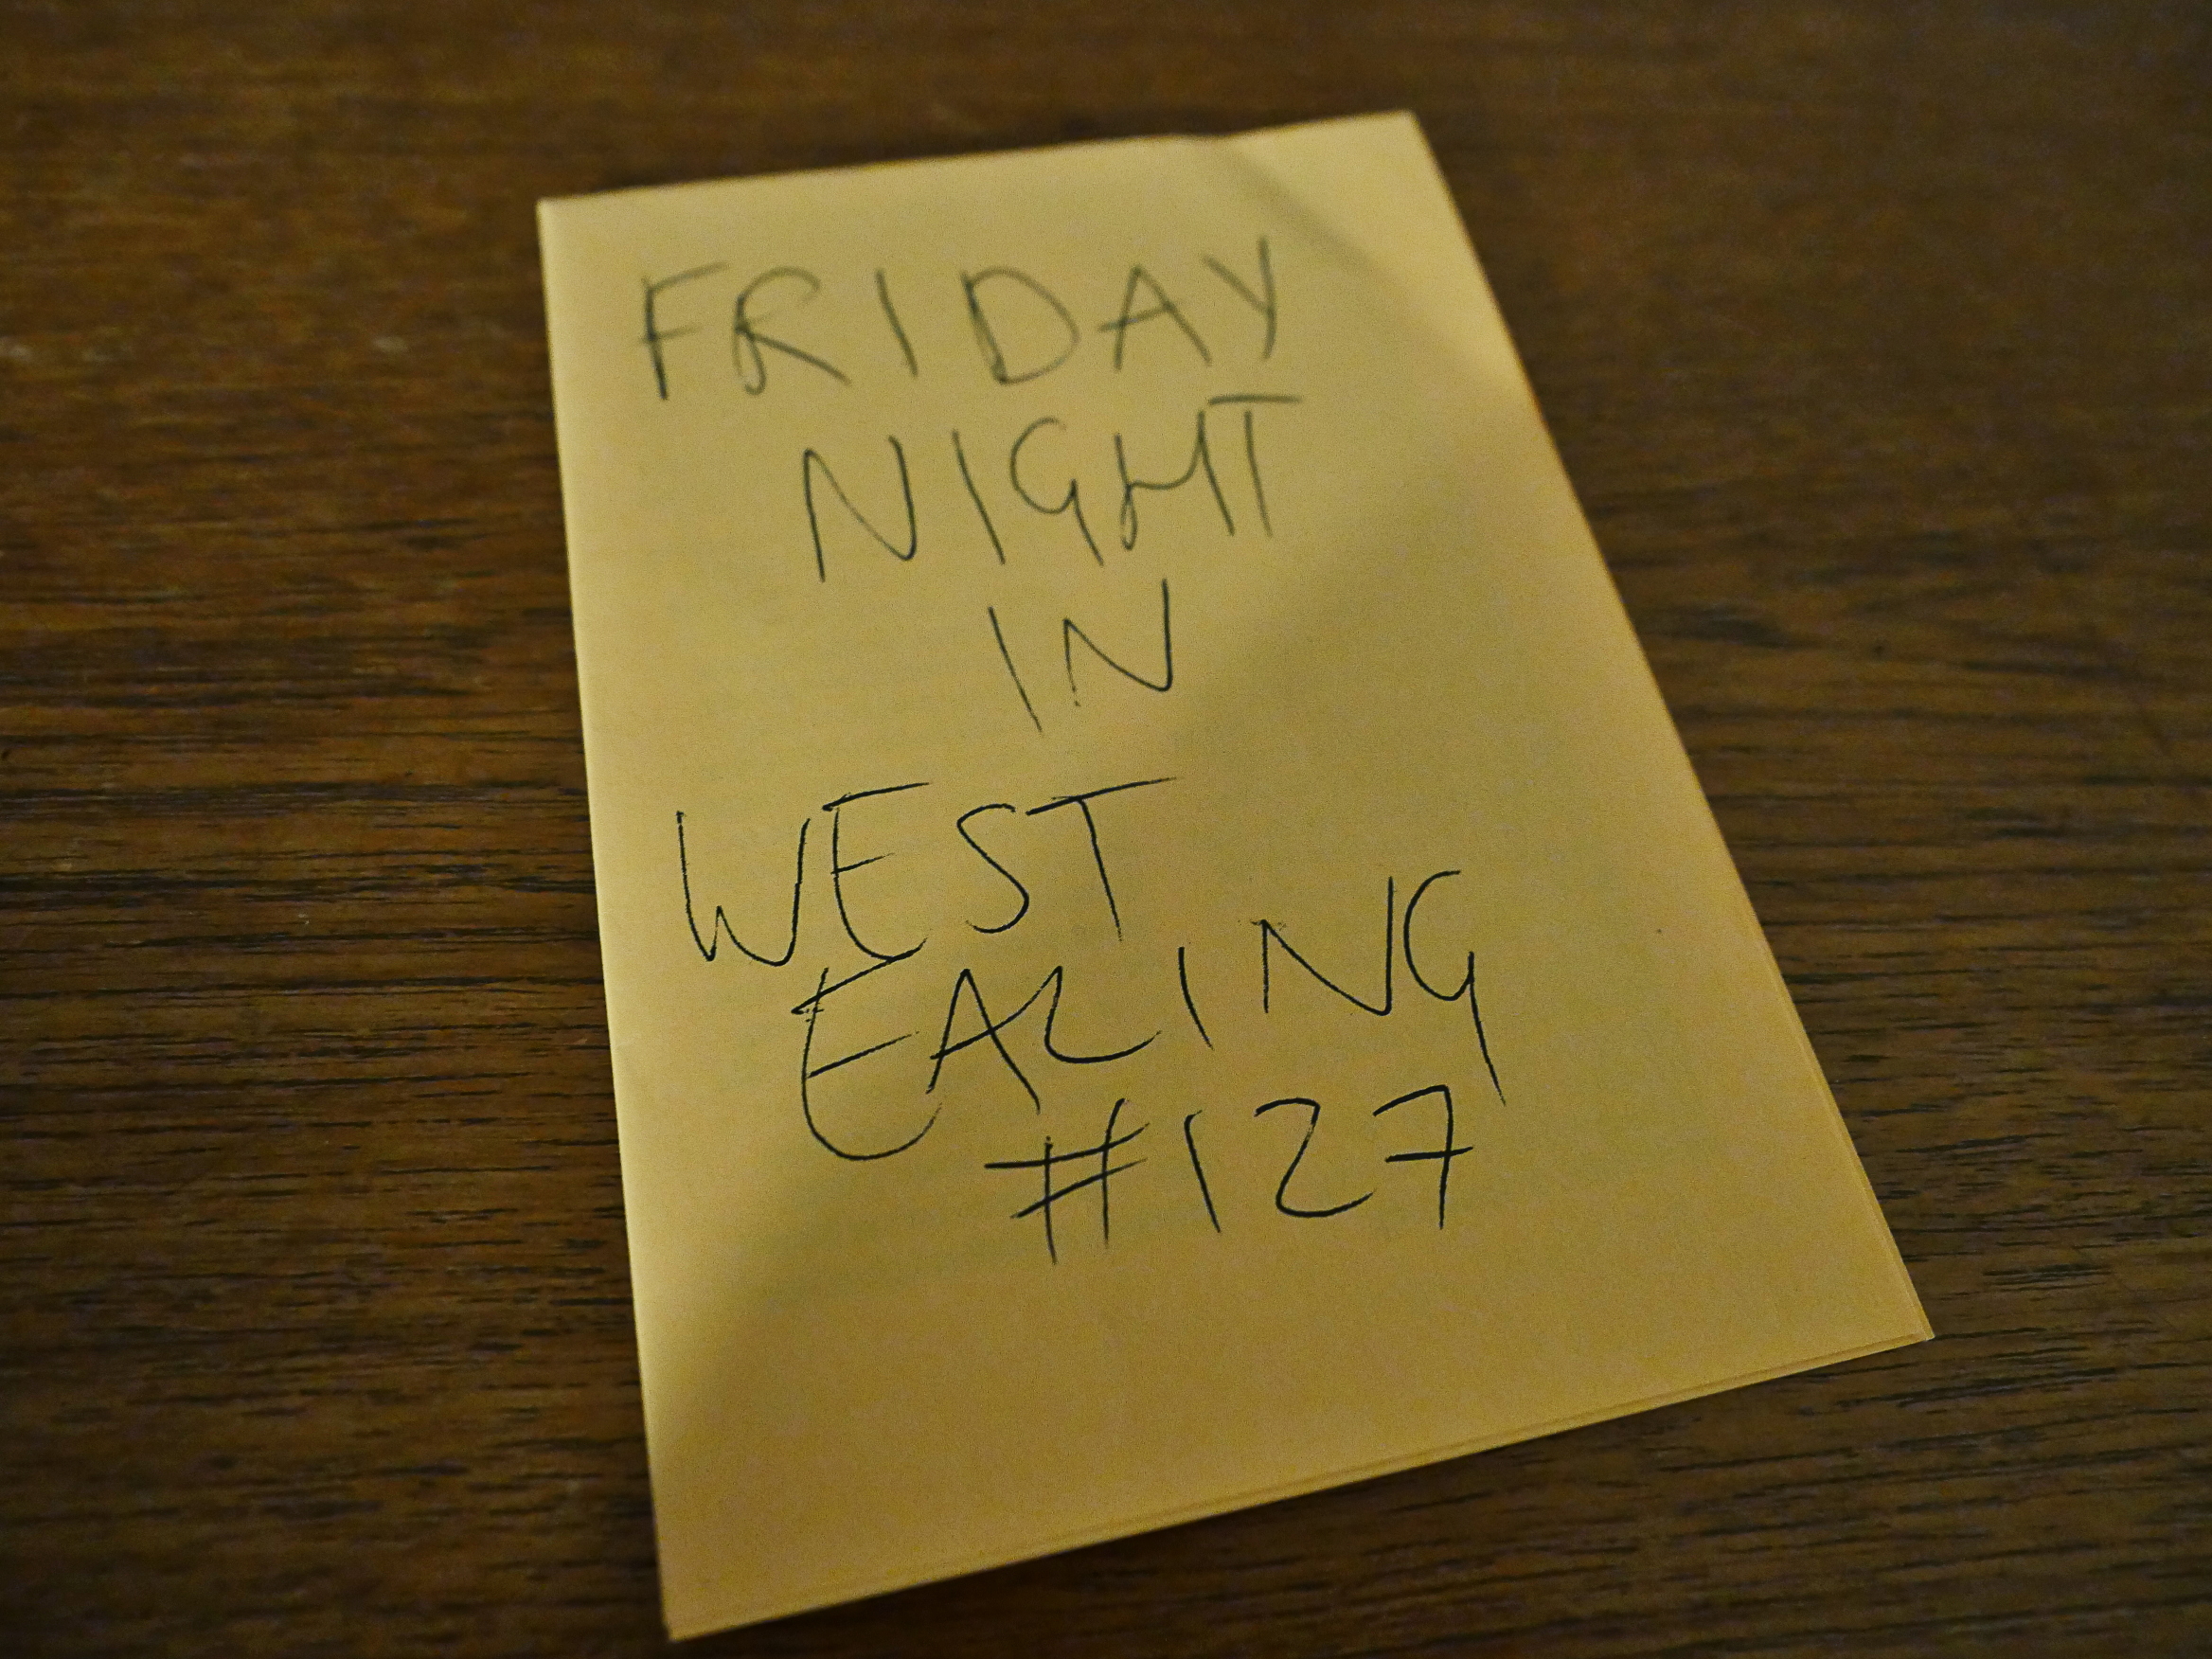 FRIDAY
NIGHT
IN
WEST
EALING
#127